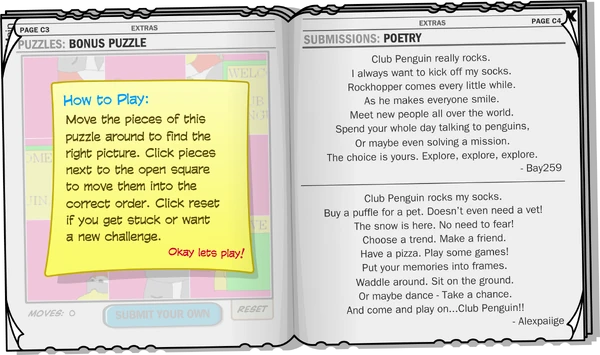 PAGE C3
EXTRAS
PUZZLES: BONUS PUZZLE
How to Play:
Move the pieces of this
puzzle around to find the
right picture. Click pieces
next to the open square
to move them into the
correct order. Click reset
if you get stuck or want
a new challenge.
Okay lets play!
MOVES: 0
SUBMIT YOUR OWN
RESET
EXTRAS
PAGE C4
X
SUBMISSIONS: POETRY
Club Penguin really rocks.
I always want to kick off my socks.
Rockhopper comes every little while.
As he makes everyone smile.
Meet new people all over the world.
Spend your whole day talking to penguins,
Or maybe even solving a mission.
The choice is yours. Explore, explore, explore.
- Bay259
Club Penguin rocks my socks.
Buy a puffle for a pet. Doesn't even need a vet!
The snow is here. No need to fear!
Choose a trend. Make a friend.
Have a pizza. Play some games!
Put your memories into frames.
Waddle around. Sit on the ground.
Or maybe dance - Take a chance.
And come and play on...Club Penguin!!
- Alexpaiige